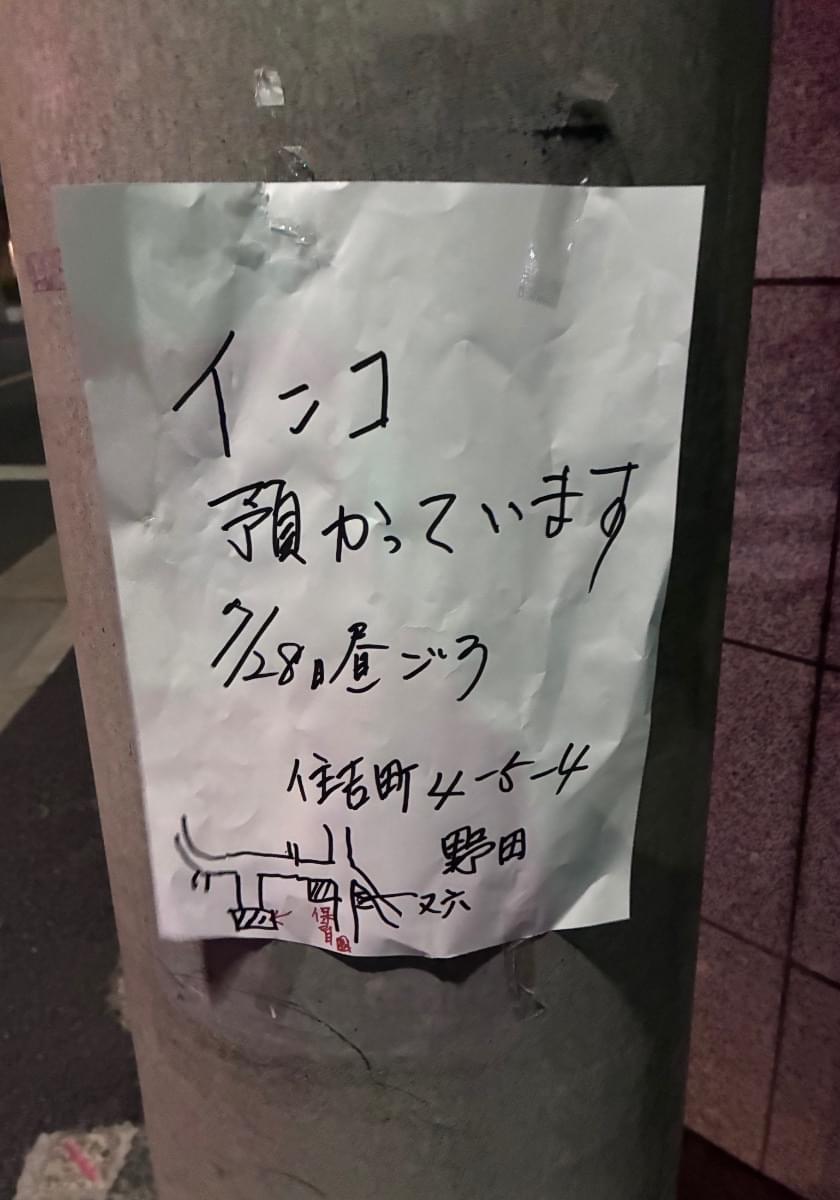 インコ
預かっています
7/28日昼ごろ
住吉町4-5-4
野田
又六
保育園